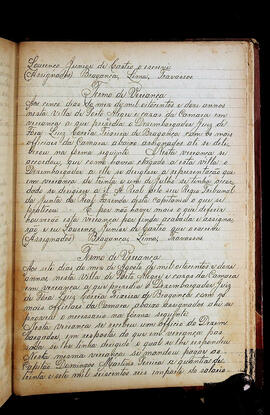 Lourenço Junior de Castro, o escrevi
(Assignados) Bragança, Lima, Travassos
Termo de Vereança
Aos cinco dias do mez de mil oitocentos e dois annos
nesta villa de Porto Alegre e casas da Camara em
vereança a que presidio o Desembargador Juiz de
Fóra Luiz Corrêa Teixeira de Bragança com os mais
officiaes da Camara abaixo assignados ahi se deli-
berou na forma seguinte. Nesta vereança se
accordou que como havia chegado a esta villa o
Desembargador elle se dirigisse a representação que
em vereança de
do se dirigisse a S. A. Real pelo seu Regio Tribunal
da Junta da Real Fazenda desta capitania o que se
E por não haver mais o que deferir
houverão esta vereança por finda acabada e assigna-
rão e eu Lourenço Junior de Castro que escrevi
(Assignados) Bragança, Lima, Travassos
Termo de Vereança
Aos sete dias do mez de Agosto de mil oitocentos e dois
annos nesta Villa de Porto Alegre e casas da Camara
em vereança a que presidio o Desembargador Juiz
de Fóra Luiz Corrêa Teixeira de Bragança com os
mais officiaes da Camara abaixo assignados ahi se
proveu o necessario na forma seguinte
Nesta vereança se recebeu um officio do Desem-
bargador em resposta do que em vereança pas-
sada se lhe tinha dirigido o qual se lhe respondeu
Nesta mesma vereança se mandou pagar ao
Capitão Domingos Martins Pereira a quantia de
trinta e sete mil seiscentos reis importe do salario